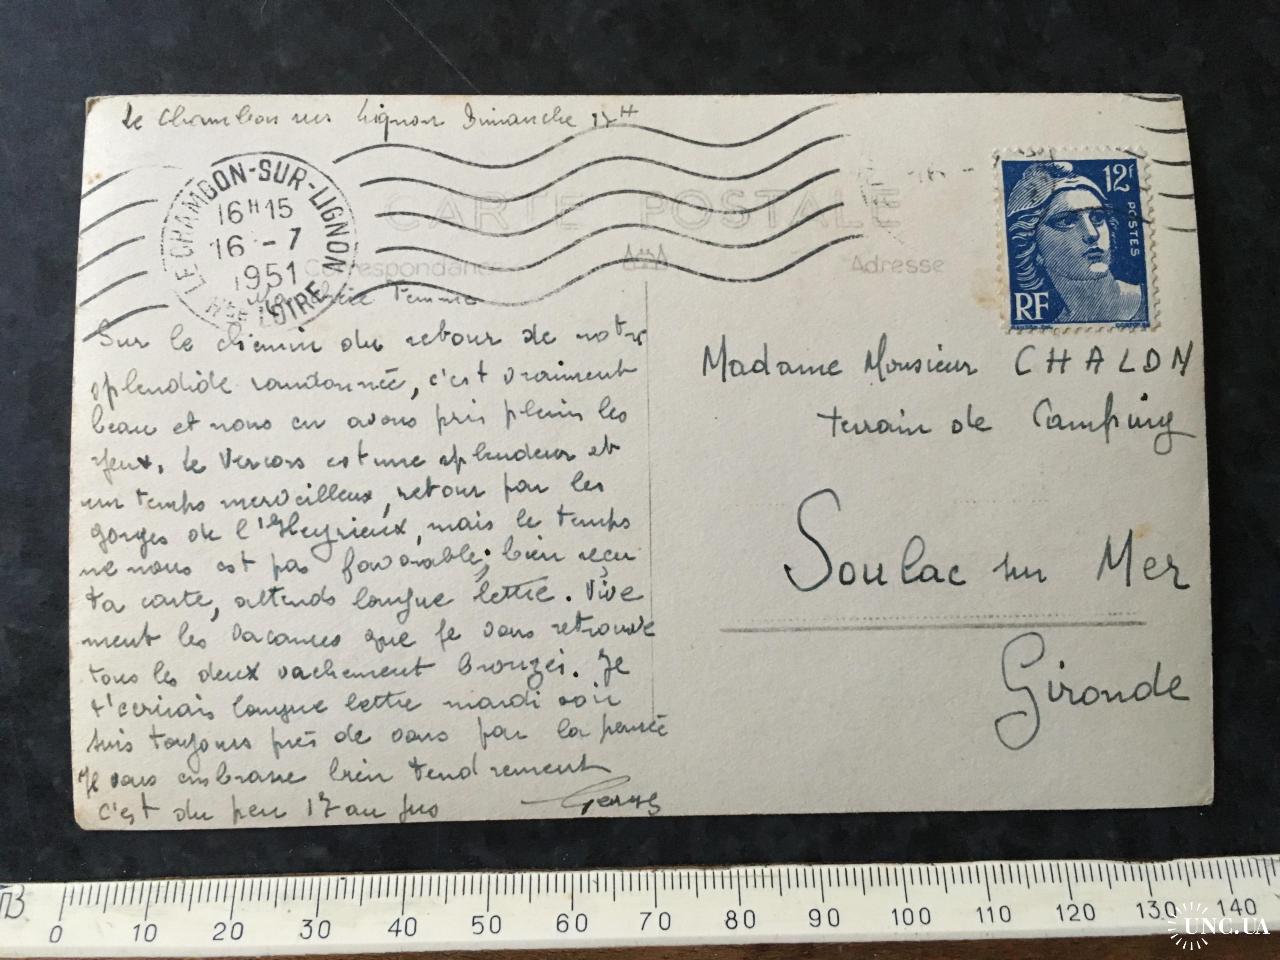 Le Chambon sur Lignon Dimanche 17H
LE CHAMBON-SUR-LIGNON
16H15
16 -7
1951
Hte LOIRE
CARTE POSTALE
Correspondance
Adresse
12F
POSTES
RF
Ma chérie Femme
Sur le chemin du retour de notre
splendide randonnée, c'est vraiment
beau et nous en avons pris plein les
yeux. Le Vercors est une splendeur et
un temps merveilleux, retour par les
gorges de l'Heyrieux, mais le temps
ne nous est pas favorable; bien reçu
ta carte, attends longue lettre. Vive
ment les vacances que je vous retrouve
tous les deux vachement bronzés. Je
t'écrirais longue lettre mardi soir
suis toujours près de vous par la pensée
Je vous embrasse bien tendrement
c'est du peu 17 au jus
Madame Monsieur CHALDY
terrain de Camping
Soulac sur Mer
Gironde
0 10 20 30 40 50 60 70 80 90 100 110 120 130 140
UNC.UA